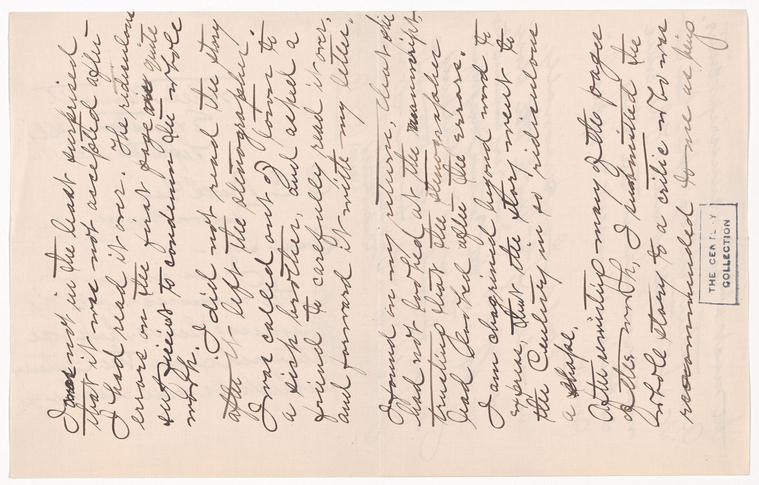 I was not in the least surprised
that it was not accepted after
I had read it over. The ridiculous
errors on the first page are quite
sufficient to condemn the whole
work. I did not read the story
after it left the stenographer.
I was called out of town to
a sick brother, and asked a
friend to carefully read it over,
and forward it with my letter.
I found on my return, that she
had not looked at the manuscript,
trusting that the stenographer
had looked after the errors.
I am chagrined beyond word to
express, that the story went to
the Century in so ridiculous
a shape.
After rewriting many of the pages
of the work, I submitted the
whole story to a critic who was
recommended to me as being
THE CENTURY
COLLECTION